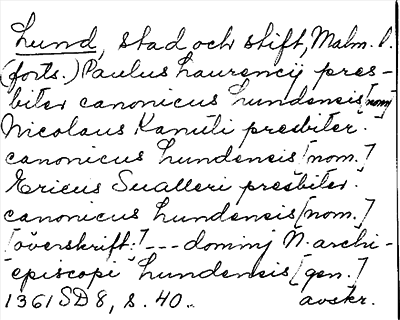 Lund, stad och stift, Malm. l.
(forts.) Paulus Laurencij pres-
biter canonicus lundensis [nom]
Nicolaus Kanuti presbiter.
canonicus lundensis [nom.]
Ericus Sualleri presbiter.
canonicus lundensis [nom.]
[överskrift:] --- dominj N. archi-
episcopi lundensis [gen.]
1361 SD 8, s. 40. avskr.